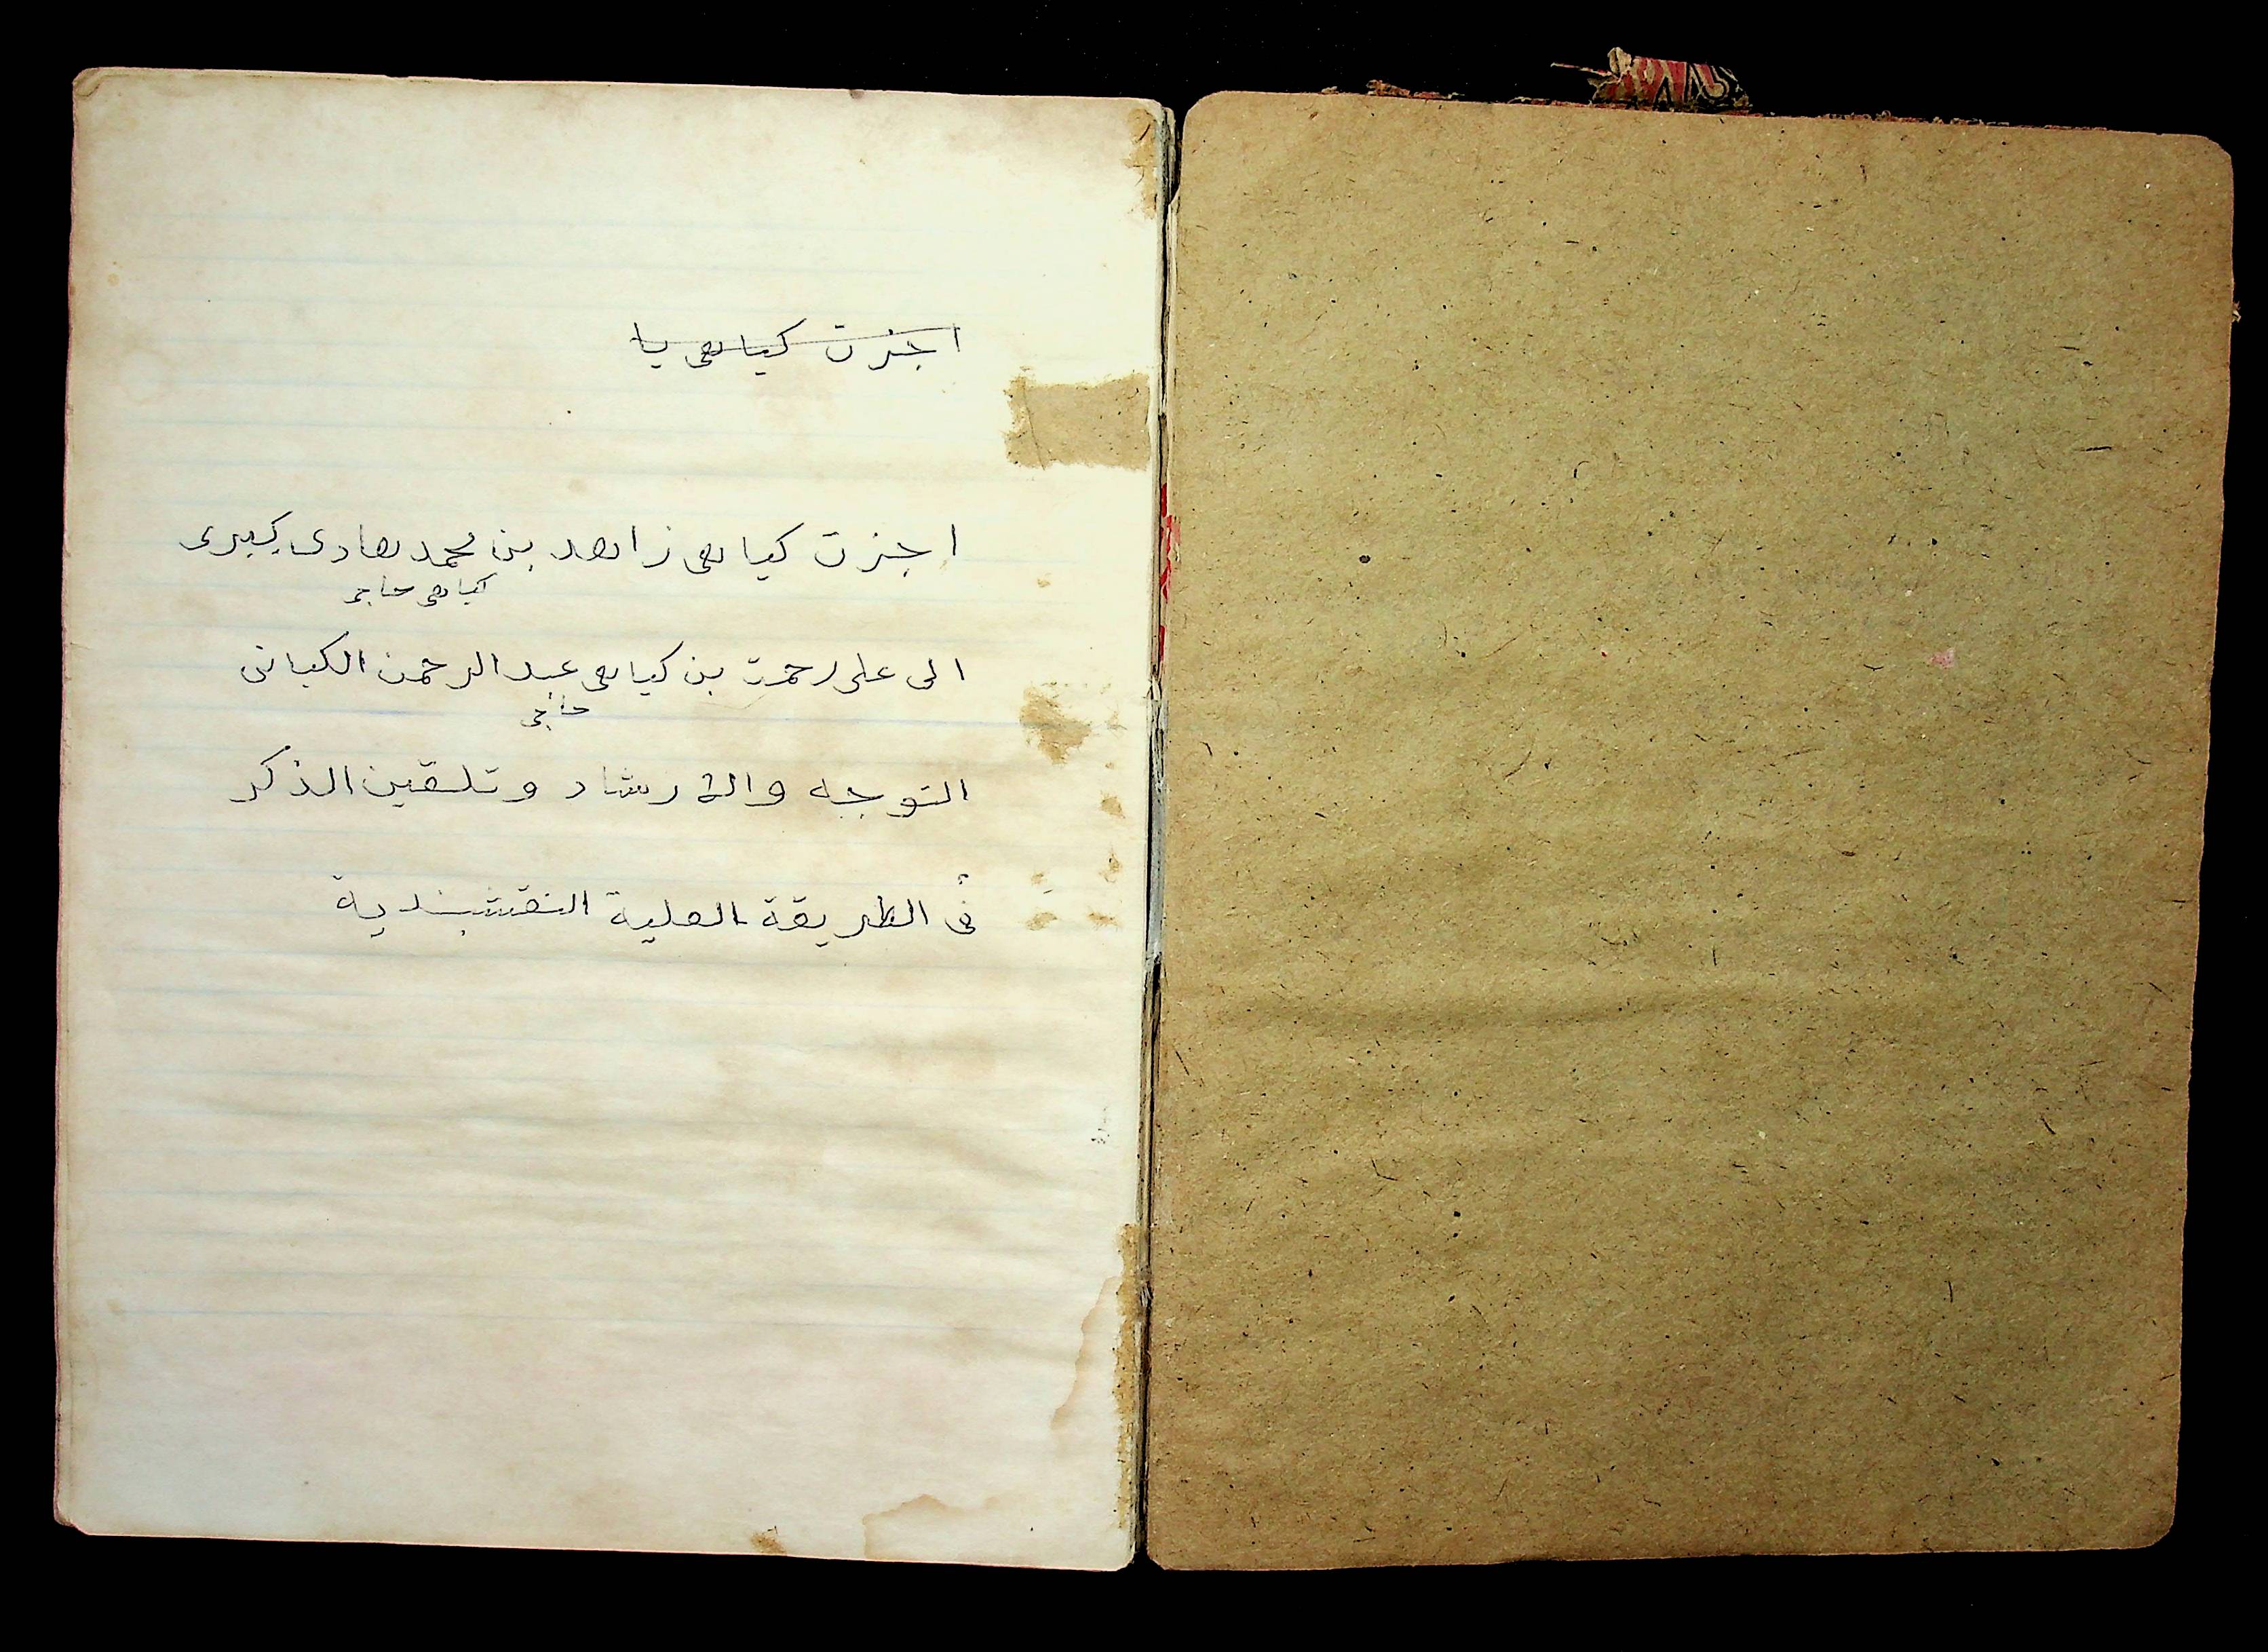 اجزت كياهى يا
اجزت كياهى زاهد بن محمد هادى كيرى
كياهى حاجى
الى على رحمت بن كياهى عبد الرحمن الكيانى
حاجى
التوجه والارشاد وتلقين الذكر
فى الطريقة العلية النقشبندية